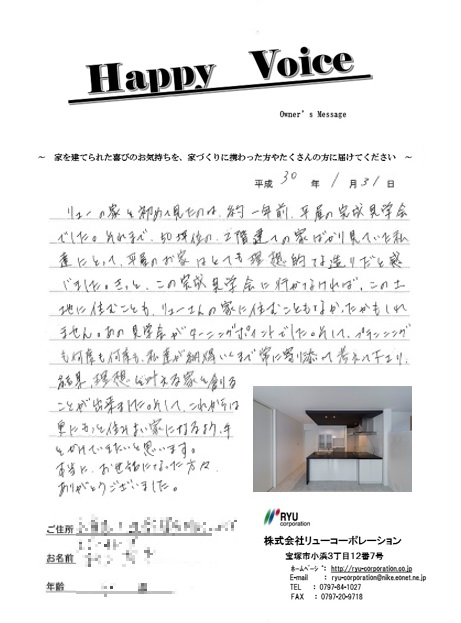 Happy Voice
Owner's Message
～ 家を建てられた喜びのお気持ちを、家づくりに携わった方やたくさんの方に届けてください ～
平成 30 年 1 月 31 日
リューの家を初めて見たのは、約一年前、平屋の完成見学会
でした。それまで、50坪位の、2階建ての家ばかり見ていた私
達にとって、平屋のお家はとても理想的な造りだと感
じました。きっと、この完成見学会に行かなければ、この土
地に住むことも、リューさんの家に住むこともなかったかもしれ
ません。あの見学会がターニングポイントでした。そして、プランニング
も何度も何度も、私達が納得いくまで常に寄り添って考えて下さり、
結果、理想を叶える家を創る
ことが出来ました。そして、これからは
更にもっと住みよい家になるよう、手
をかけていきたいと思います。
本当に、お世話になった方々、
ありがとうございました。
ご住所
お名前
年齢
RYU
corporation
株式会社リューコーポレーション
宝塚市小浜3丁目12番7号
ﾎｰﾑﾍﾟｰｼﾞ: http://ryu-corporation.co.jp
E-mail : ryu-corporation@nike.eonet.ne.jp
TEL : 0797-84-1027
FAX : 0797-20-9718